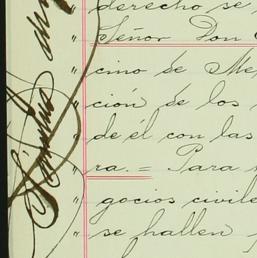 derecho se
" Señor Don
" cino de Me
" ción de los
" de él con las
" ra. = Para
" gocios civile
" se hallen